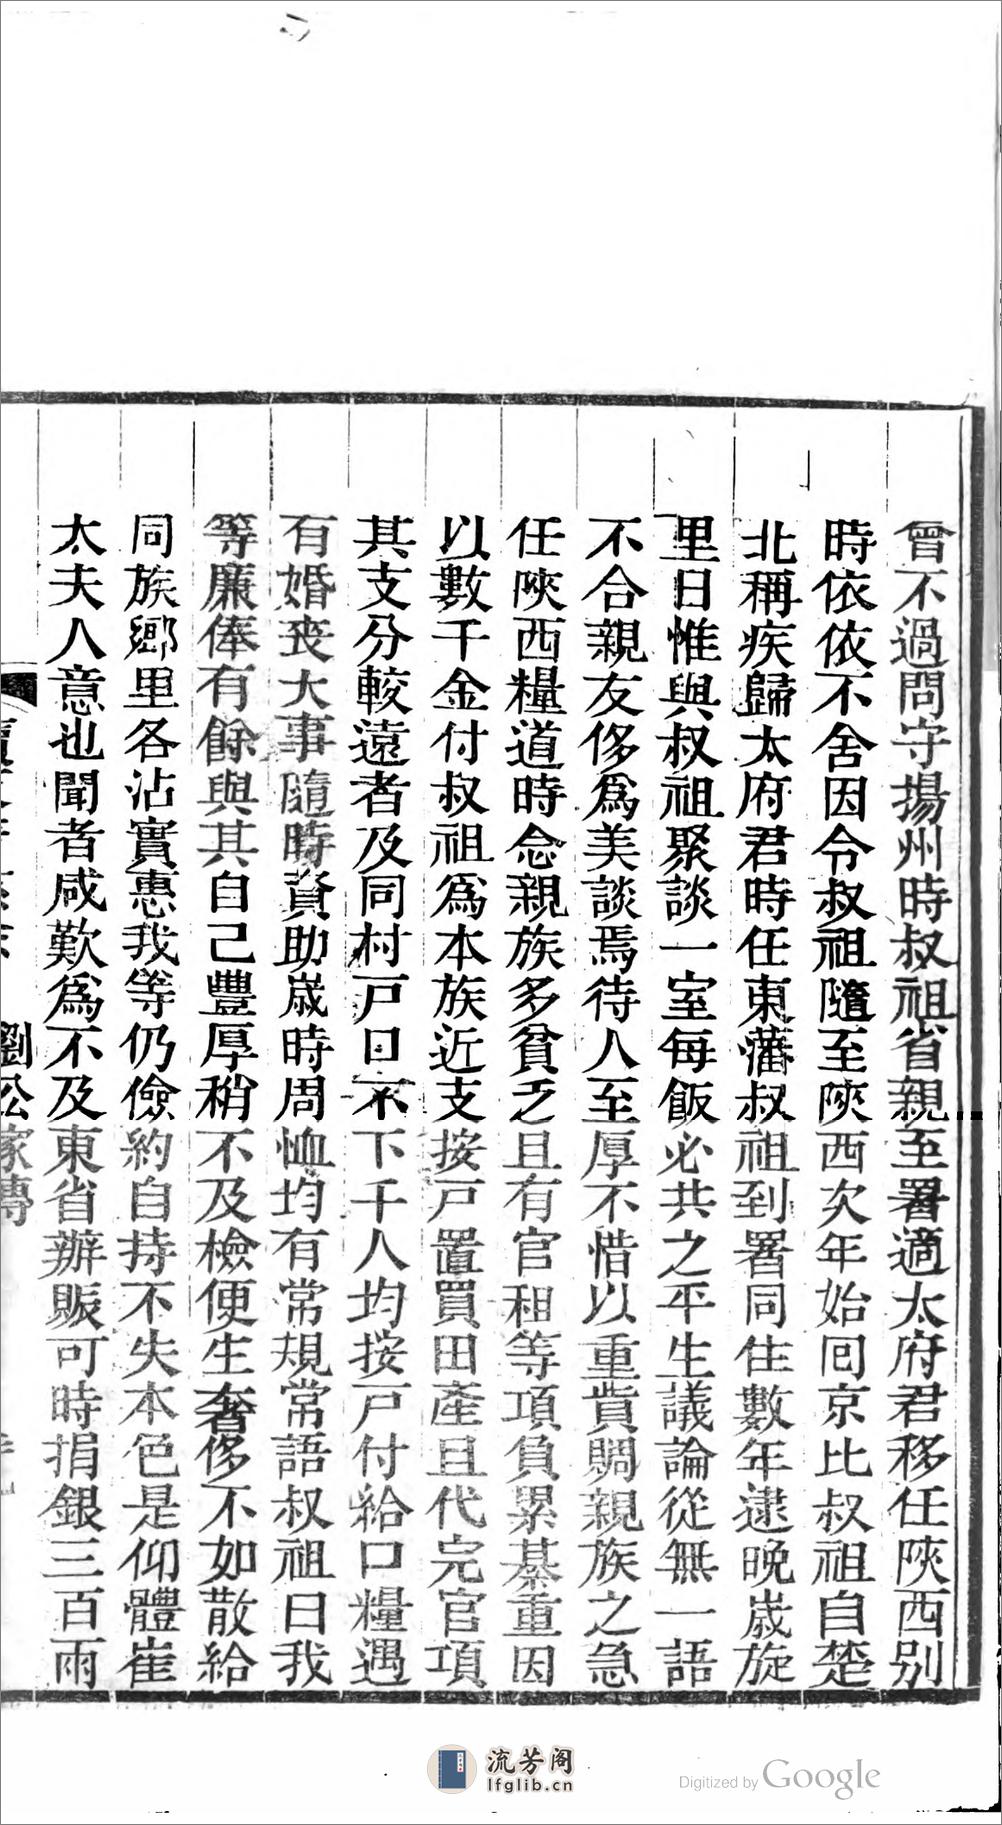 曾不過問守揚州時叔祖省親至署適太府君移任陝西别
時依依不舍因令叔祖隨至陝西次年始回京比叔祖自楚
北稱疾歸太府君時任東藩叔祖到署同住數年逮晚歲旋
里日惟與叔祖聚談一室每飯必共之平生議論從無一語
不合親友侈為美談焉待人至厚不惜以重貲賙親族之急
任陝西糧道時念親族多貧乏且有官租等項負累綦重因
以數千金付叔祖為本族近支按戸置買田產且代完官項
其支分較遠者及同村戸口不下千人均按戸付給口糧遇
有婚喪大事隨時資助歲時周恤均有常規常語叔祖曰我
等廉俸有餘與其自己豐厚稍不及檢便生奢侈不如散給
同族鄉里各沾實惠我等仍儉約自持不失本色是仰體崔
太夫人意也聞者咸歎為不及東省辦賑可時捐銀三百兩
劉公家傳
流芳阁
lfglib.cn
Digitized by Google